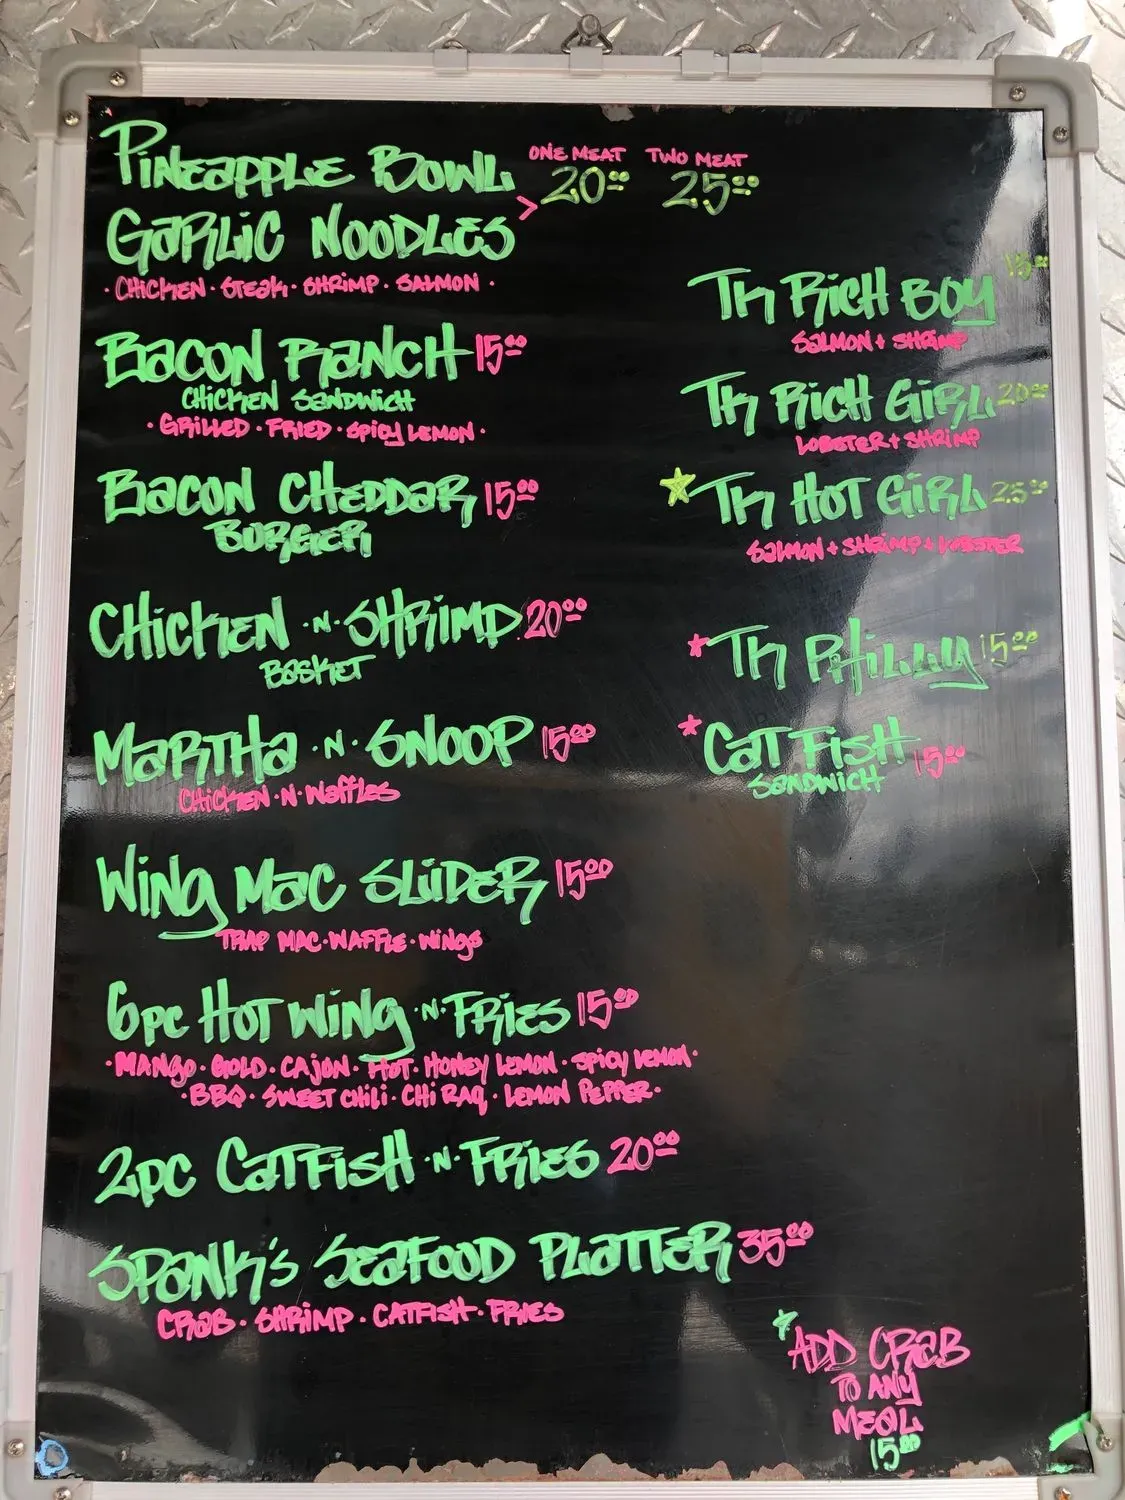 Pineapple Bowl
ONE MEAT TWO MEAT
> 20.00 25.00
Garlic Noodles
· Chicken · Steak · Shrimp · Salmon ·
Bacon Ranch 15.00
Chicken Sandwich
· Grilled · Fried · Spicy Lemon ·
Bacon Cheddar 15.00
Burger
Chicken · N · Shrimp 20.00
Basket
Martha · N · Snoop 15.00
Chicken · N · Waffles
Wing Mac Slider 15.00
Trap Mac · Waffle · Wings
6pc Hot Wing · N · Fries 15.00
· Mango · Gold · Cajon · Hot · Honey Lemon · Spicy Lemon ·
· BBQ · Sweet Chili · Chi Raq · Lemon Pepper ·
2pc Catfish · N · Fries 20.00
Spank's Seafood Platter 35.00
Crab · Shrimp · Catfish · Fries
TK Rich Boy
Salmon + Shrimp
TK Rich Girl 20.00
Lobster + Shrimp
TK Hot Girl 25.00
Salmon + Shrimp + Lobster
* TK Philly 15.00
* Cat Fish 15.00
Sandwich
* Add Crab
To Any
Meal
15.00